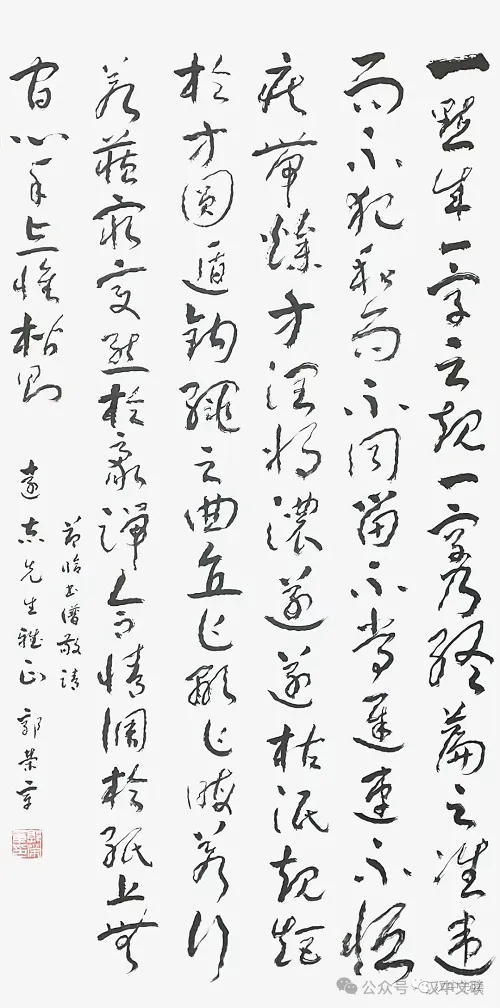 一點成一字之規一字乃終篇之准違
而不犯和而不同留不常遲遣不恒
疾帶燥方潤將濃遂遂枯泯規矩
於方圓遁鉤繩之曲直乍顯乍晦若行
若藏窮變態於豪端合情調於紙上無
間心手忘懷楷則
節臨書譜敬請
遠志先生雅正 郭榮章
公众号 · 汉中文联